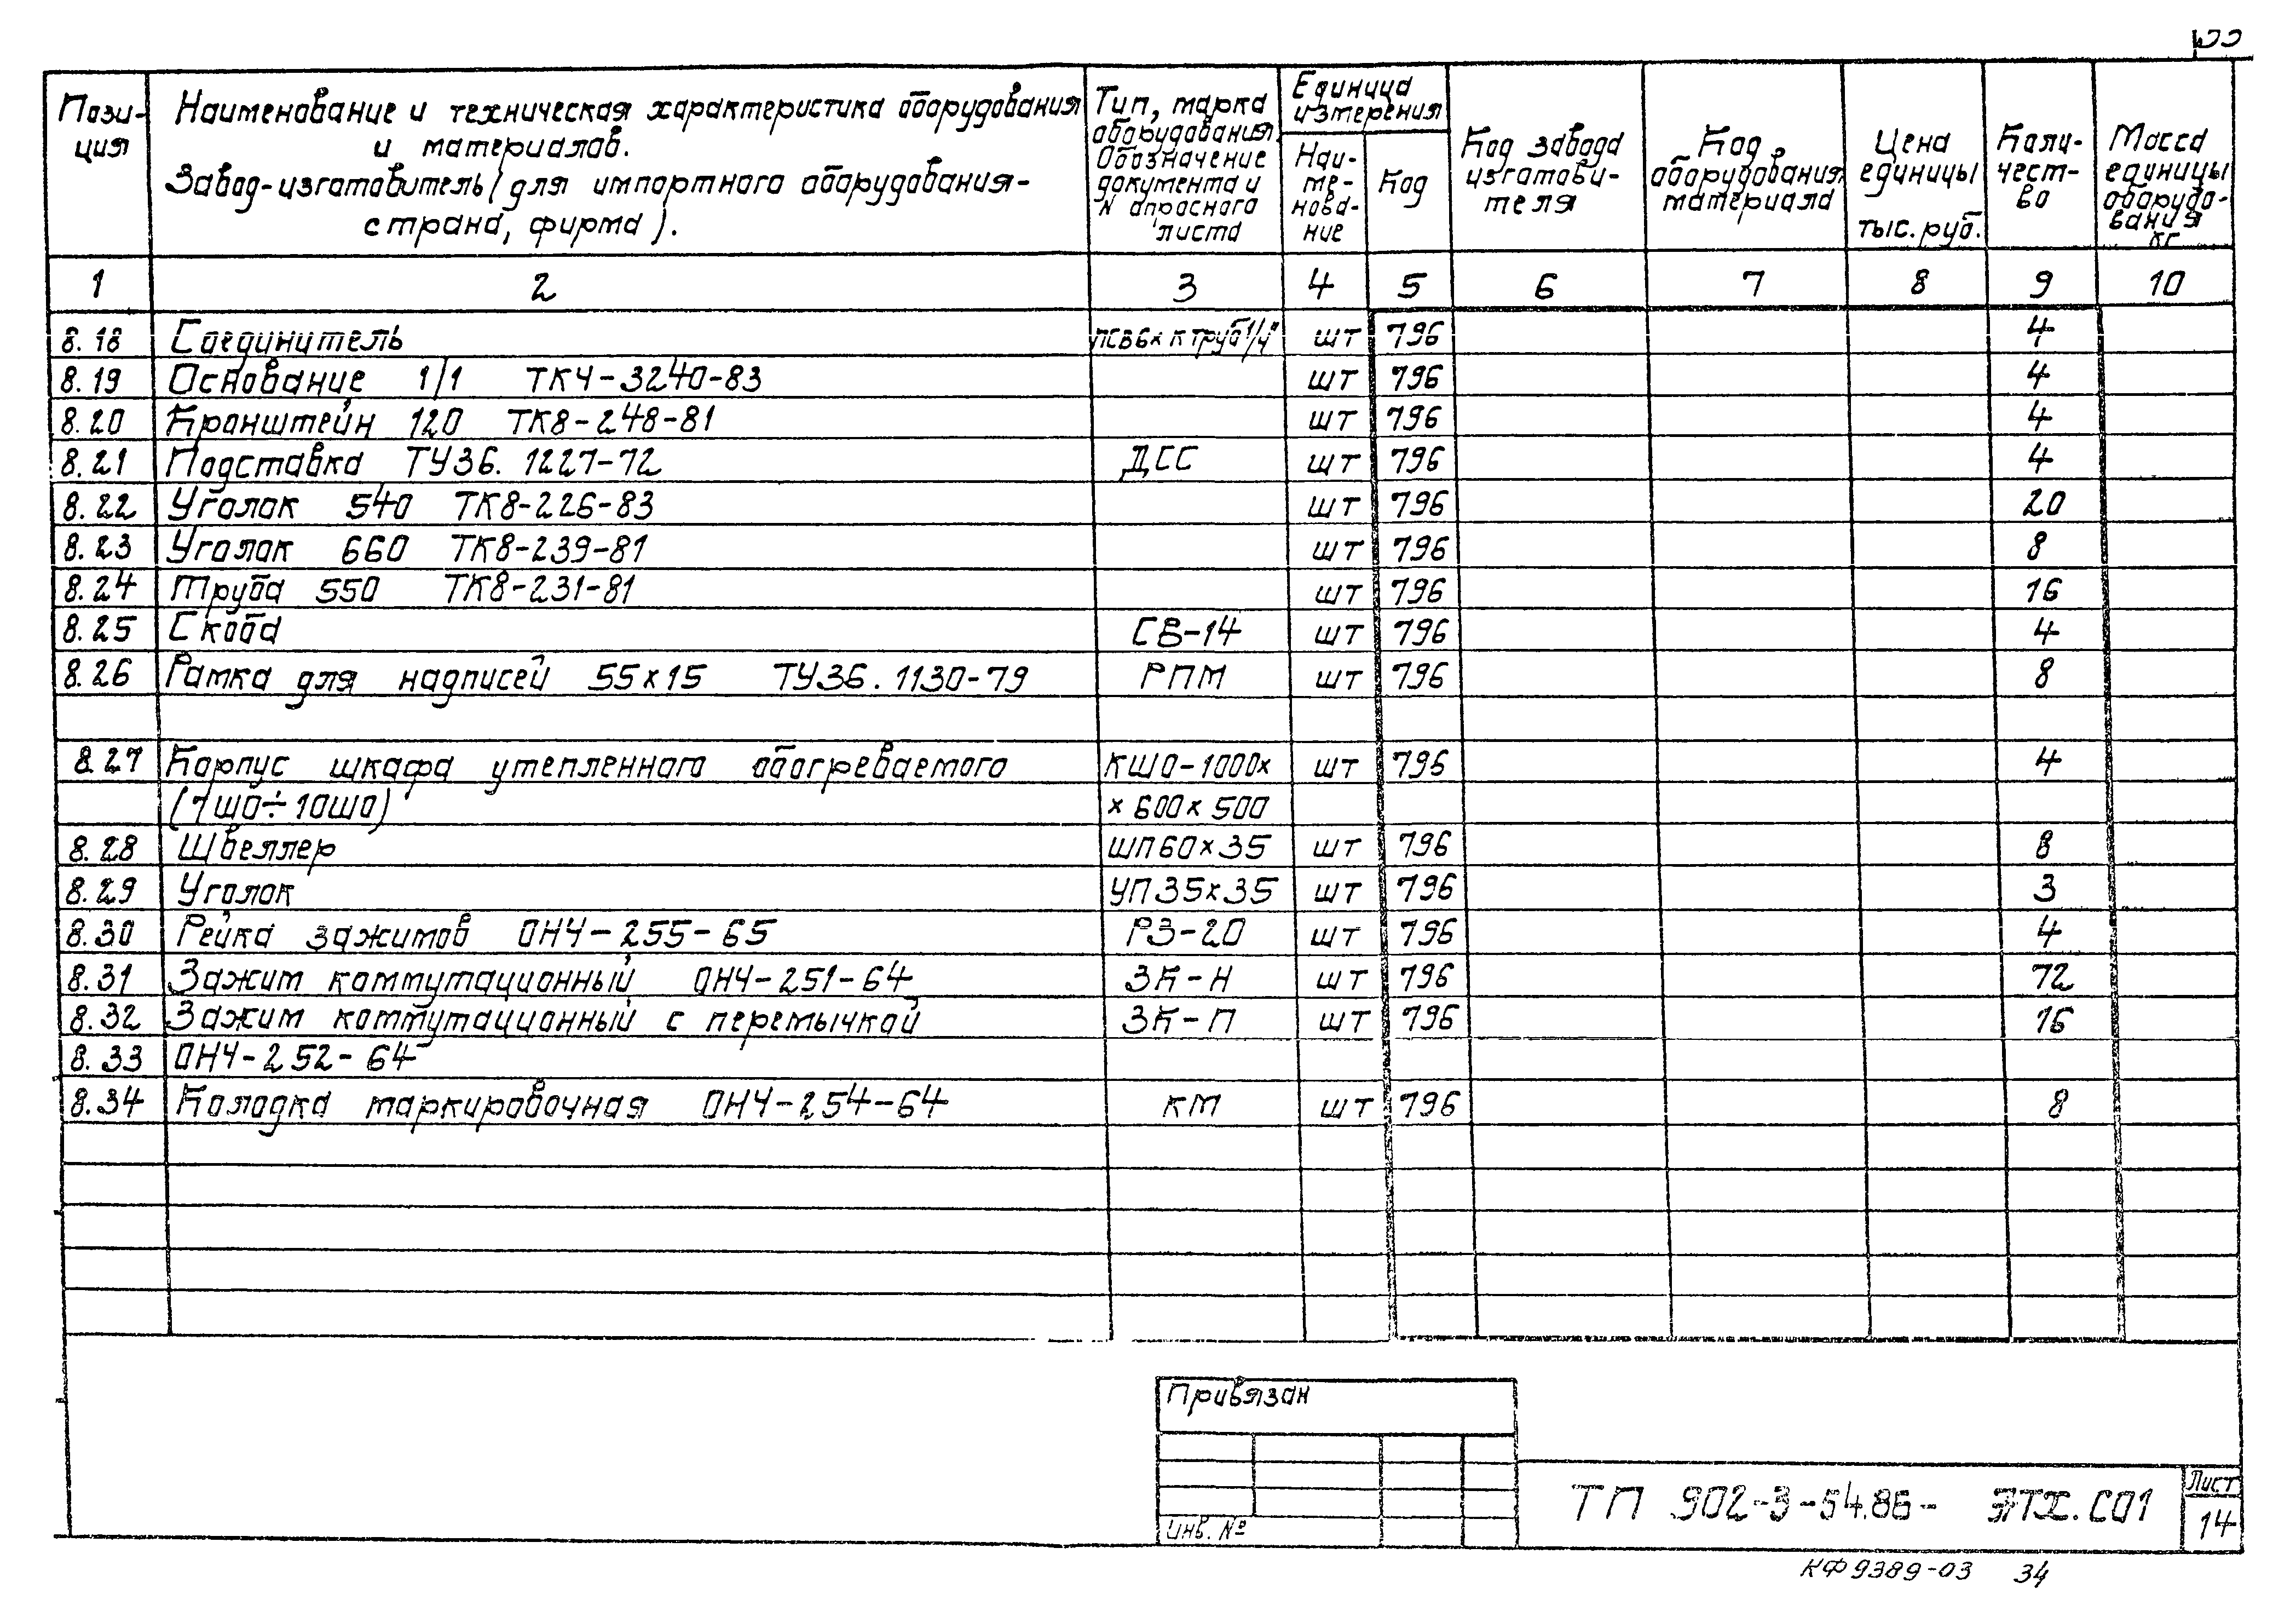 33
Пози-
ция
Наименование и техническая характеристика оборудования
и материалов.
Завод-изготовитель (для импортного оборудования-
страна, фирма).
Тип, марка
оборудования.
Обозначение
документа и
N опросного
листа
Единица
измерения
Наи-
ме-
нова-
ние
Код
Код завода
изготови-
теля
Код
оборудования,
материала
Цена
единицы
тыс. руб.
Коли-
чест-
во
Масса
единицы
оборудо-
вания
кг
1 2 3 4 5 6 7 8 9 10
8.18 Соединитель ПСВ6х К труб 1/4" шт 796 4
8.19 Основание 1/1 ТК4-3240-83 шт 796 4
8.20 Кронштейн 120 ТК8-248-81 шт 796 4
8.21 Подставка ТУ36.1227-72 ДСС шт 796 4
8.22 Уголок 540 ТК8-226-83 шт 796 20
8.23 Уголок 660 ТК8-239-81 шт 796 8
8.24 Труба 550 ТК8-231-81 шт 796 16
8.25 Скоба СВ-14 шт 796 4
8.26 Рамка для надписей 55х15 ТУ36.1130-79 РПМ шт 796 8
8.27 Корпус шкафа утепленного обогреваемого КШО-1000х шт 796 4
(7ШО÷10ШО) х 600 х 500
8.28 Швеллер ШП60х35 шт 796 8
8.29 Уголок УП35х35 шт 796 3
8.30 Рейка зажимов ОН4-255-65 РЗ-20 шт 796 4
8.31 Зажим коммутационный ОН4-251-64 ЗК-Н шт 796 72
8.32 Зажим коммутационный с перемычкой ЗК-П шт 796 16
8.33 ОН4-252-64
8.34 Колодка маркировочная ОН4-254-64 КМ шт 796 8
Привязан
Инв. №
ТП 902-3-54.86- ЭТХ.СО1
Лист
14
КФ9389-03 34